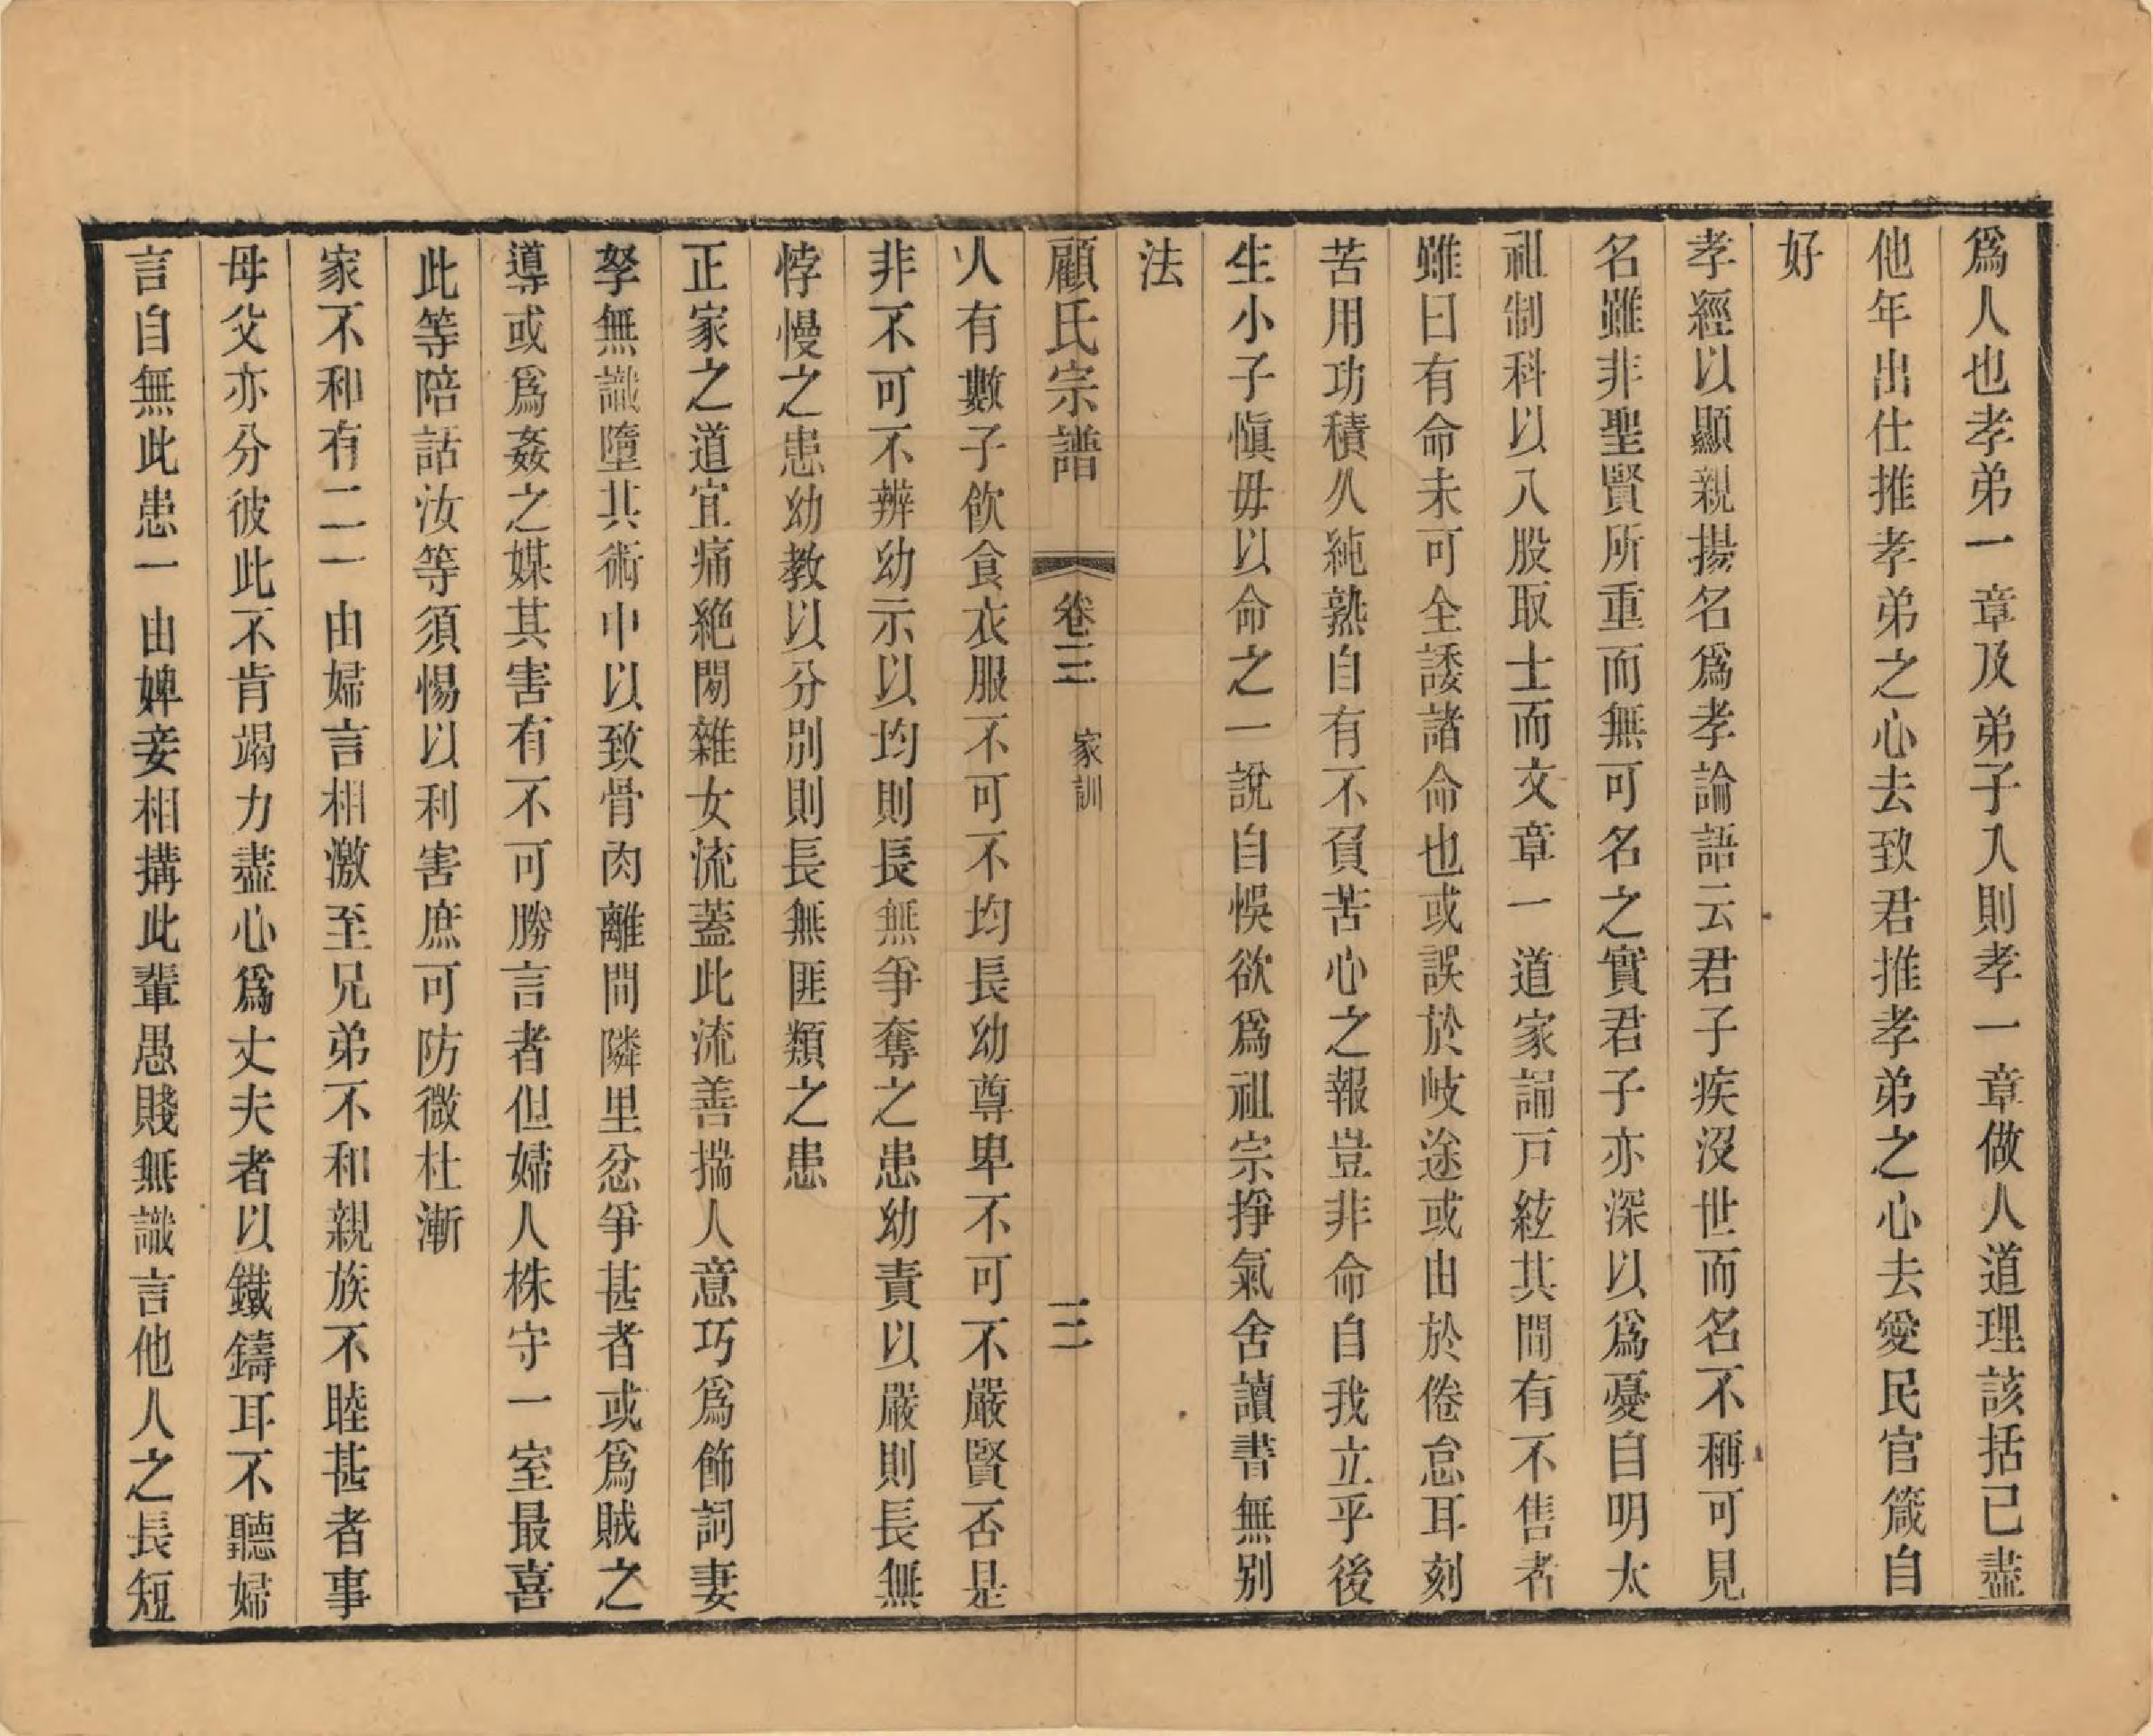 爲人也孝弟一章及弟子入則孝一章做人道理該括已盡
他年出仕推孝弟之心去致君推孝弟之心去愛民官箴自
好
孝經以顯親揚名爲孝論語云君子疾沒世而名不稱可見
名雖非聖賢所重而無可名之實君子亦深以爲憂自明太
祖制科以八股取士而文章一道家誦戸絃其間有不售者
雖曰有命未可全諉諸命也或誤於岐途或由於倦怠耳刻
苦用功積久純熟自有不負苦心之報豈非命自我立乎後
生小子愼毋以命之一說自悞欲爲祖宗掙氣舍讀書無别
法
顧氏宗譜
卷三
家訓
三
人有數子飮食衣服不可不均長幼尊卑不可不嚴賢否是
非不可不辨幼示以均則長無爭奪之患幼責以嚴則長無
悖慢之患幼教以分別則長無匪類之患
正家之道宜痛絶閑雜女流蓋此流善揣人意巧爲飾詞妻
孥無識墮其術中以致骨肉離間隣里忿爭甚者或爲賊之
導或爲姦之媒其害有不可勝言者但婦人株守一室最喜
此等陪話汝等須惕以利害庶可防微杜漸
家不和有二一由婦言相激至兄弟不和親族不睦甚者事
母父亦分彼此不肯竭力盡心爲丈夫者以鐵鑄耳不聽婦
言自無此患一由婢妾相搆此輩愚賤無識言他人之長短